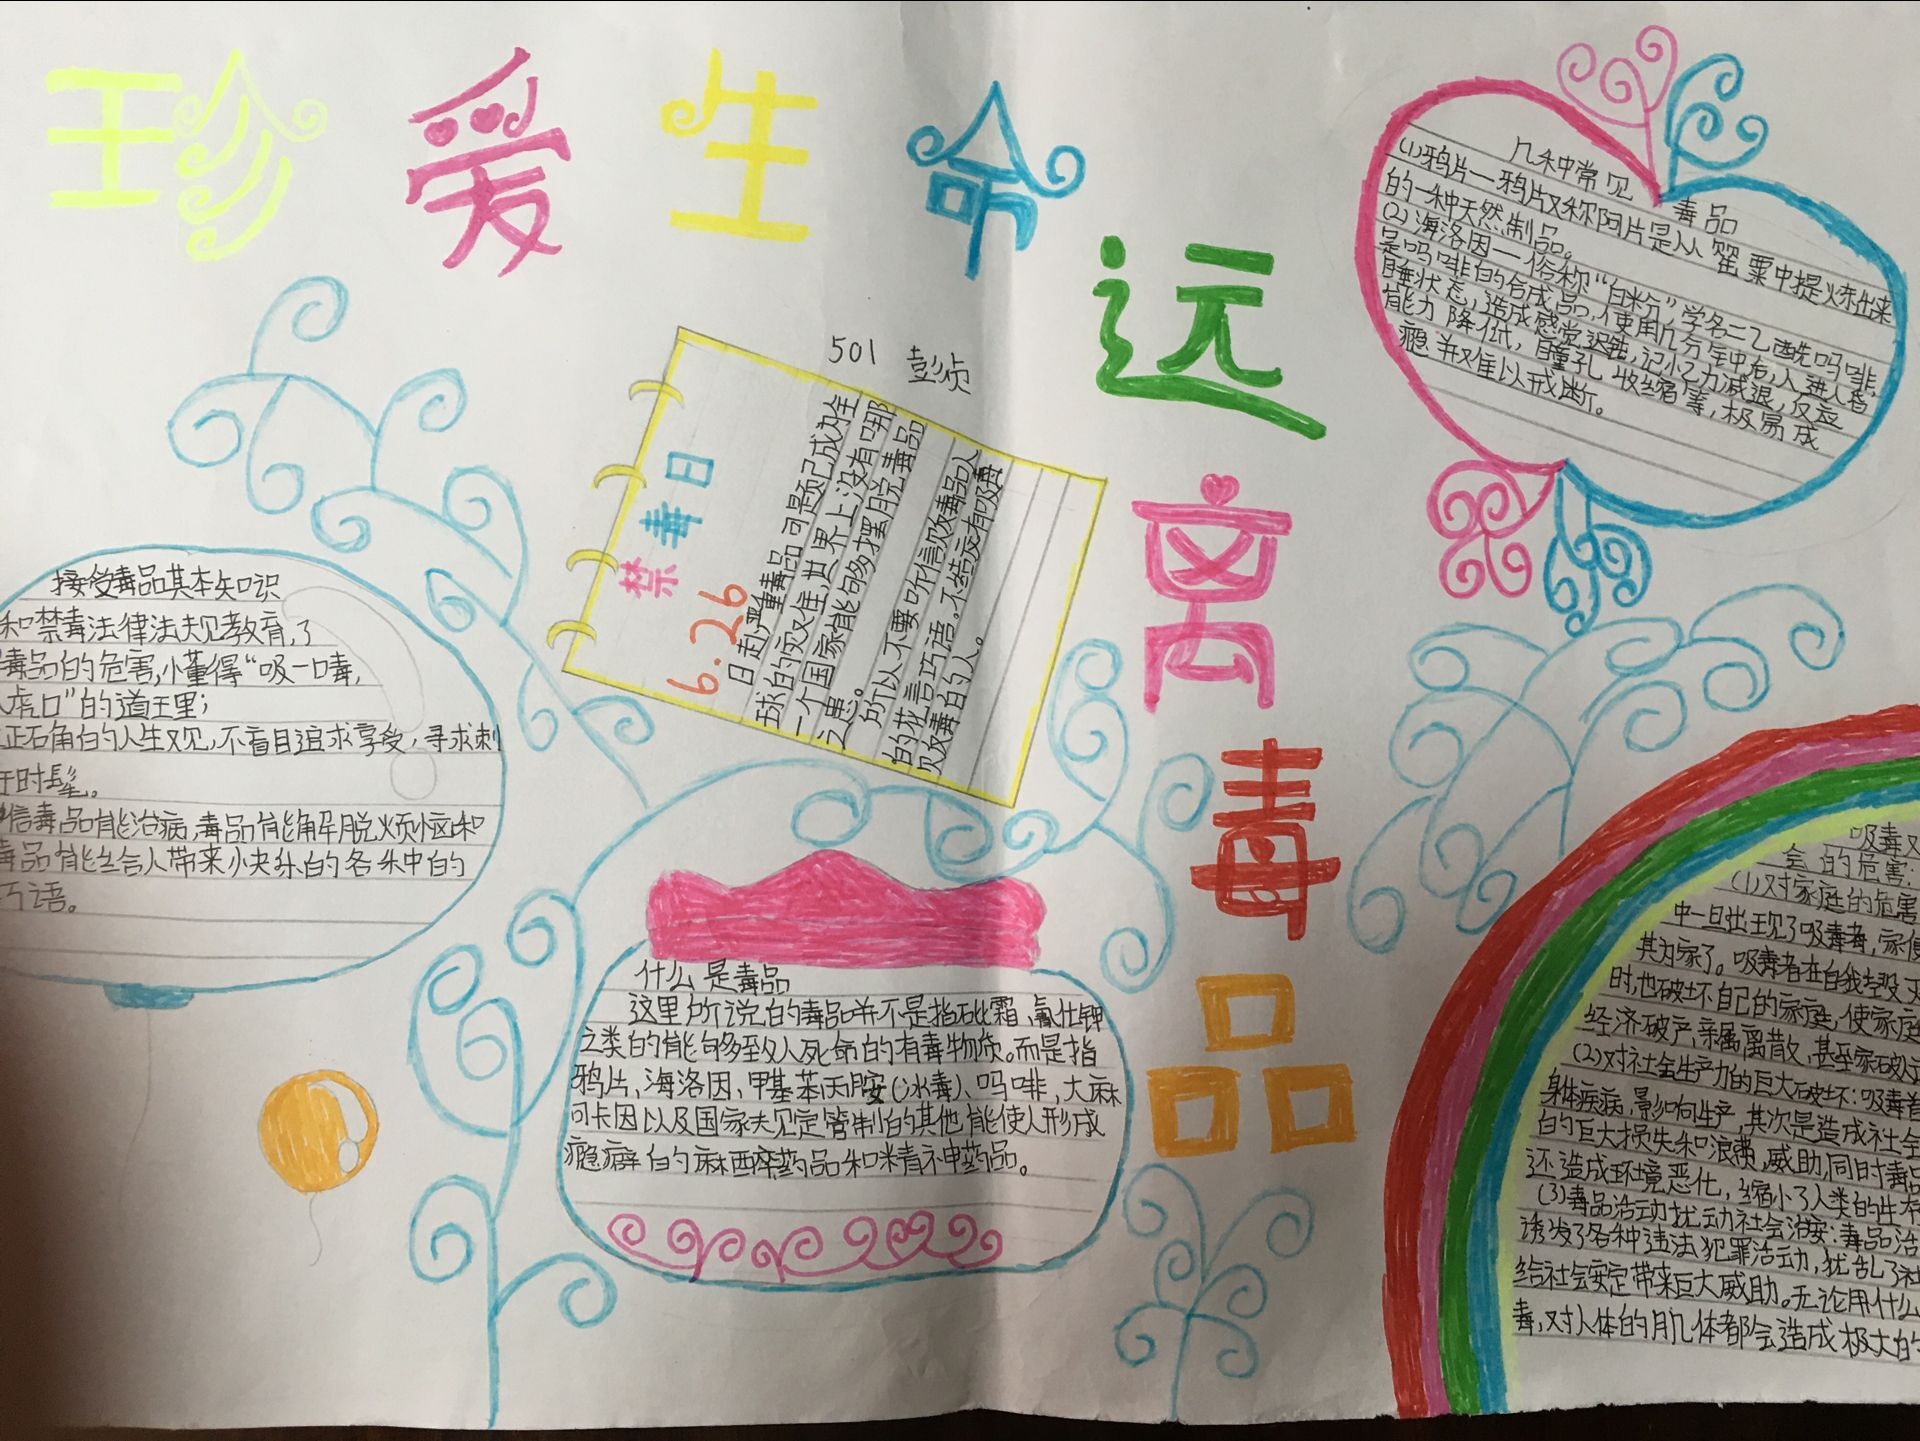 珍爱生命
远离毒品
501 彭贞
禁毒日
6.26
日趋严重毒品问题已成为全
球的灾又隹世界上没有哪
一个国家能够摆脱毒品
之患。
所以不要听信贩毒品人
的花言巧语。不结交有吸毒
贩毒的人。
几种常见毒品
(1)鸦片—鸦片又称阿片是从罂粟中提炼出来
的一种天然制品。
(2)海洛因—俗称“白粉”,学名二乙酰吗啡,
是吗啡的合成品,使用几分钟后,人进入昏
睡状态,造成感觉迟钝,记忆力减退,反应
能力降低,瞳孔收缩等,极易成
瘾并难以戒断。
接受毒品其本知识
和禁毒法律法规教育,了
毒品的危害,小董得“吸一口毒,
入虎口”的道王里;
正确的人生观,不盲目追求享受,寻求刺
于时髦。
信毒品能治病,毒品能解脱烦恼和
毒品能给人带来小夬乐的各种的
巧语。
什么是毒品
这里所说的毒品并不是指砒霜、氰化钾
之类的能够致人死命的有毒物质。而是指
鸦片,海洛因、甲基苯丙胺(冰毒)、吗啡,大麻
可卡因以及国家规定管制的其他能使人形成
瘾癖的麻醉药品和精神药品。
吸毒对
会的危害:
(1)对家庭的危害
中一旦出现了吸毒者,家便
其为家了。吸毒者在自我毁灭
时,也破坏自己的家庭,使家庭
经济破产,亲属离散,甚至家破
(2)对社会生产力的巨大破坏:吸毒首
身体疾病,影响生产,其次是造成社会
的巨大损失和浪费,威助,同时毒品
还造成环境恶化,缩小了人类的生存
(3)毒品活动扰动社会治安:毒品活
诱发了各种违法犯罪活动,扰乱了社
给社会安定带来巨大威助。无论用什么
毒,对人体的肌体都会造成极大的